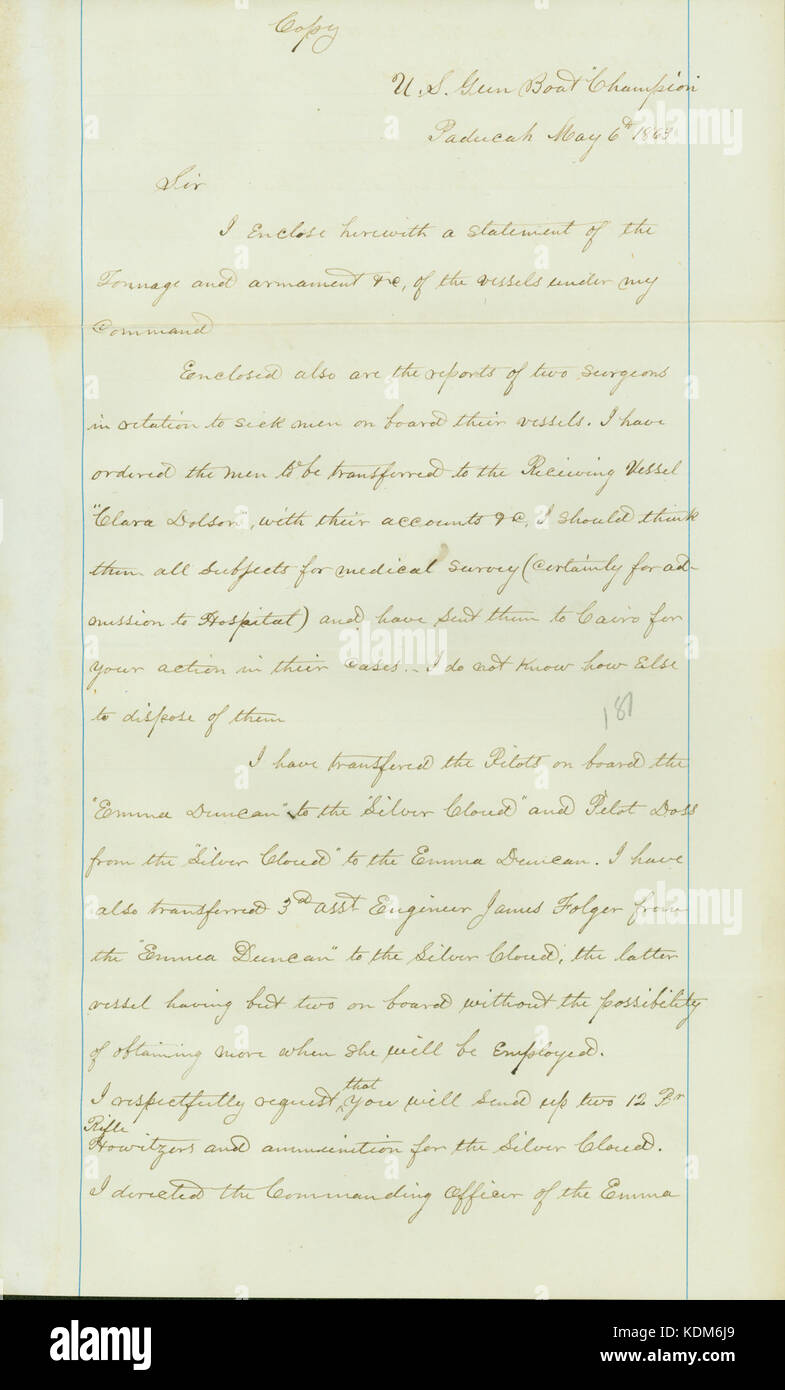 Copy
U. S. Gun Boat "Champion
Paducah May 6th 1863
Sir
I Enclose herewith a statement of the
Tonnage and armament &c, of the vessels under my
Command
Enclosed also are the reports of two Surgeons
in relation to sick men on board their vessels. I have
ordered the men to be transferred to the Receiving Vessel
"Clara Dolson", with their accounts &c, I should think
them all Subjects for medical Survey (certainly for ad-
mission to Hospital) and have sent them to Cairo for
your action in their cases.. I do not know how Else
to dispose of them
187
I have transfered the Pilots on board the
"Emma Duncan" to the "Silver Cloud" and Pilot Doss
from the "Silver Cloud" to the Emma Duncan. I have
also transferred 3rd asst Engineer James Folger from
the "Emma Duncan" to the Silver Cloud, the latter
vessel having but two on board without the possibility
of obtaining more when she will be Employed.
I respectfully request that you will send up two 12 Pr
Rifle
Howitzers and ammunition for the Silver Cloud.
I directed the Commanding Officer of the Emma
alamy
alamy
alamy
a
a
a
a
alamy
Image ID: KDM6J9
www.alamy.com